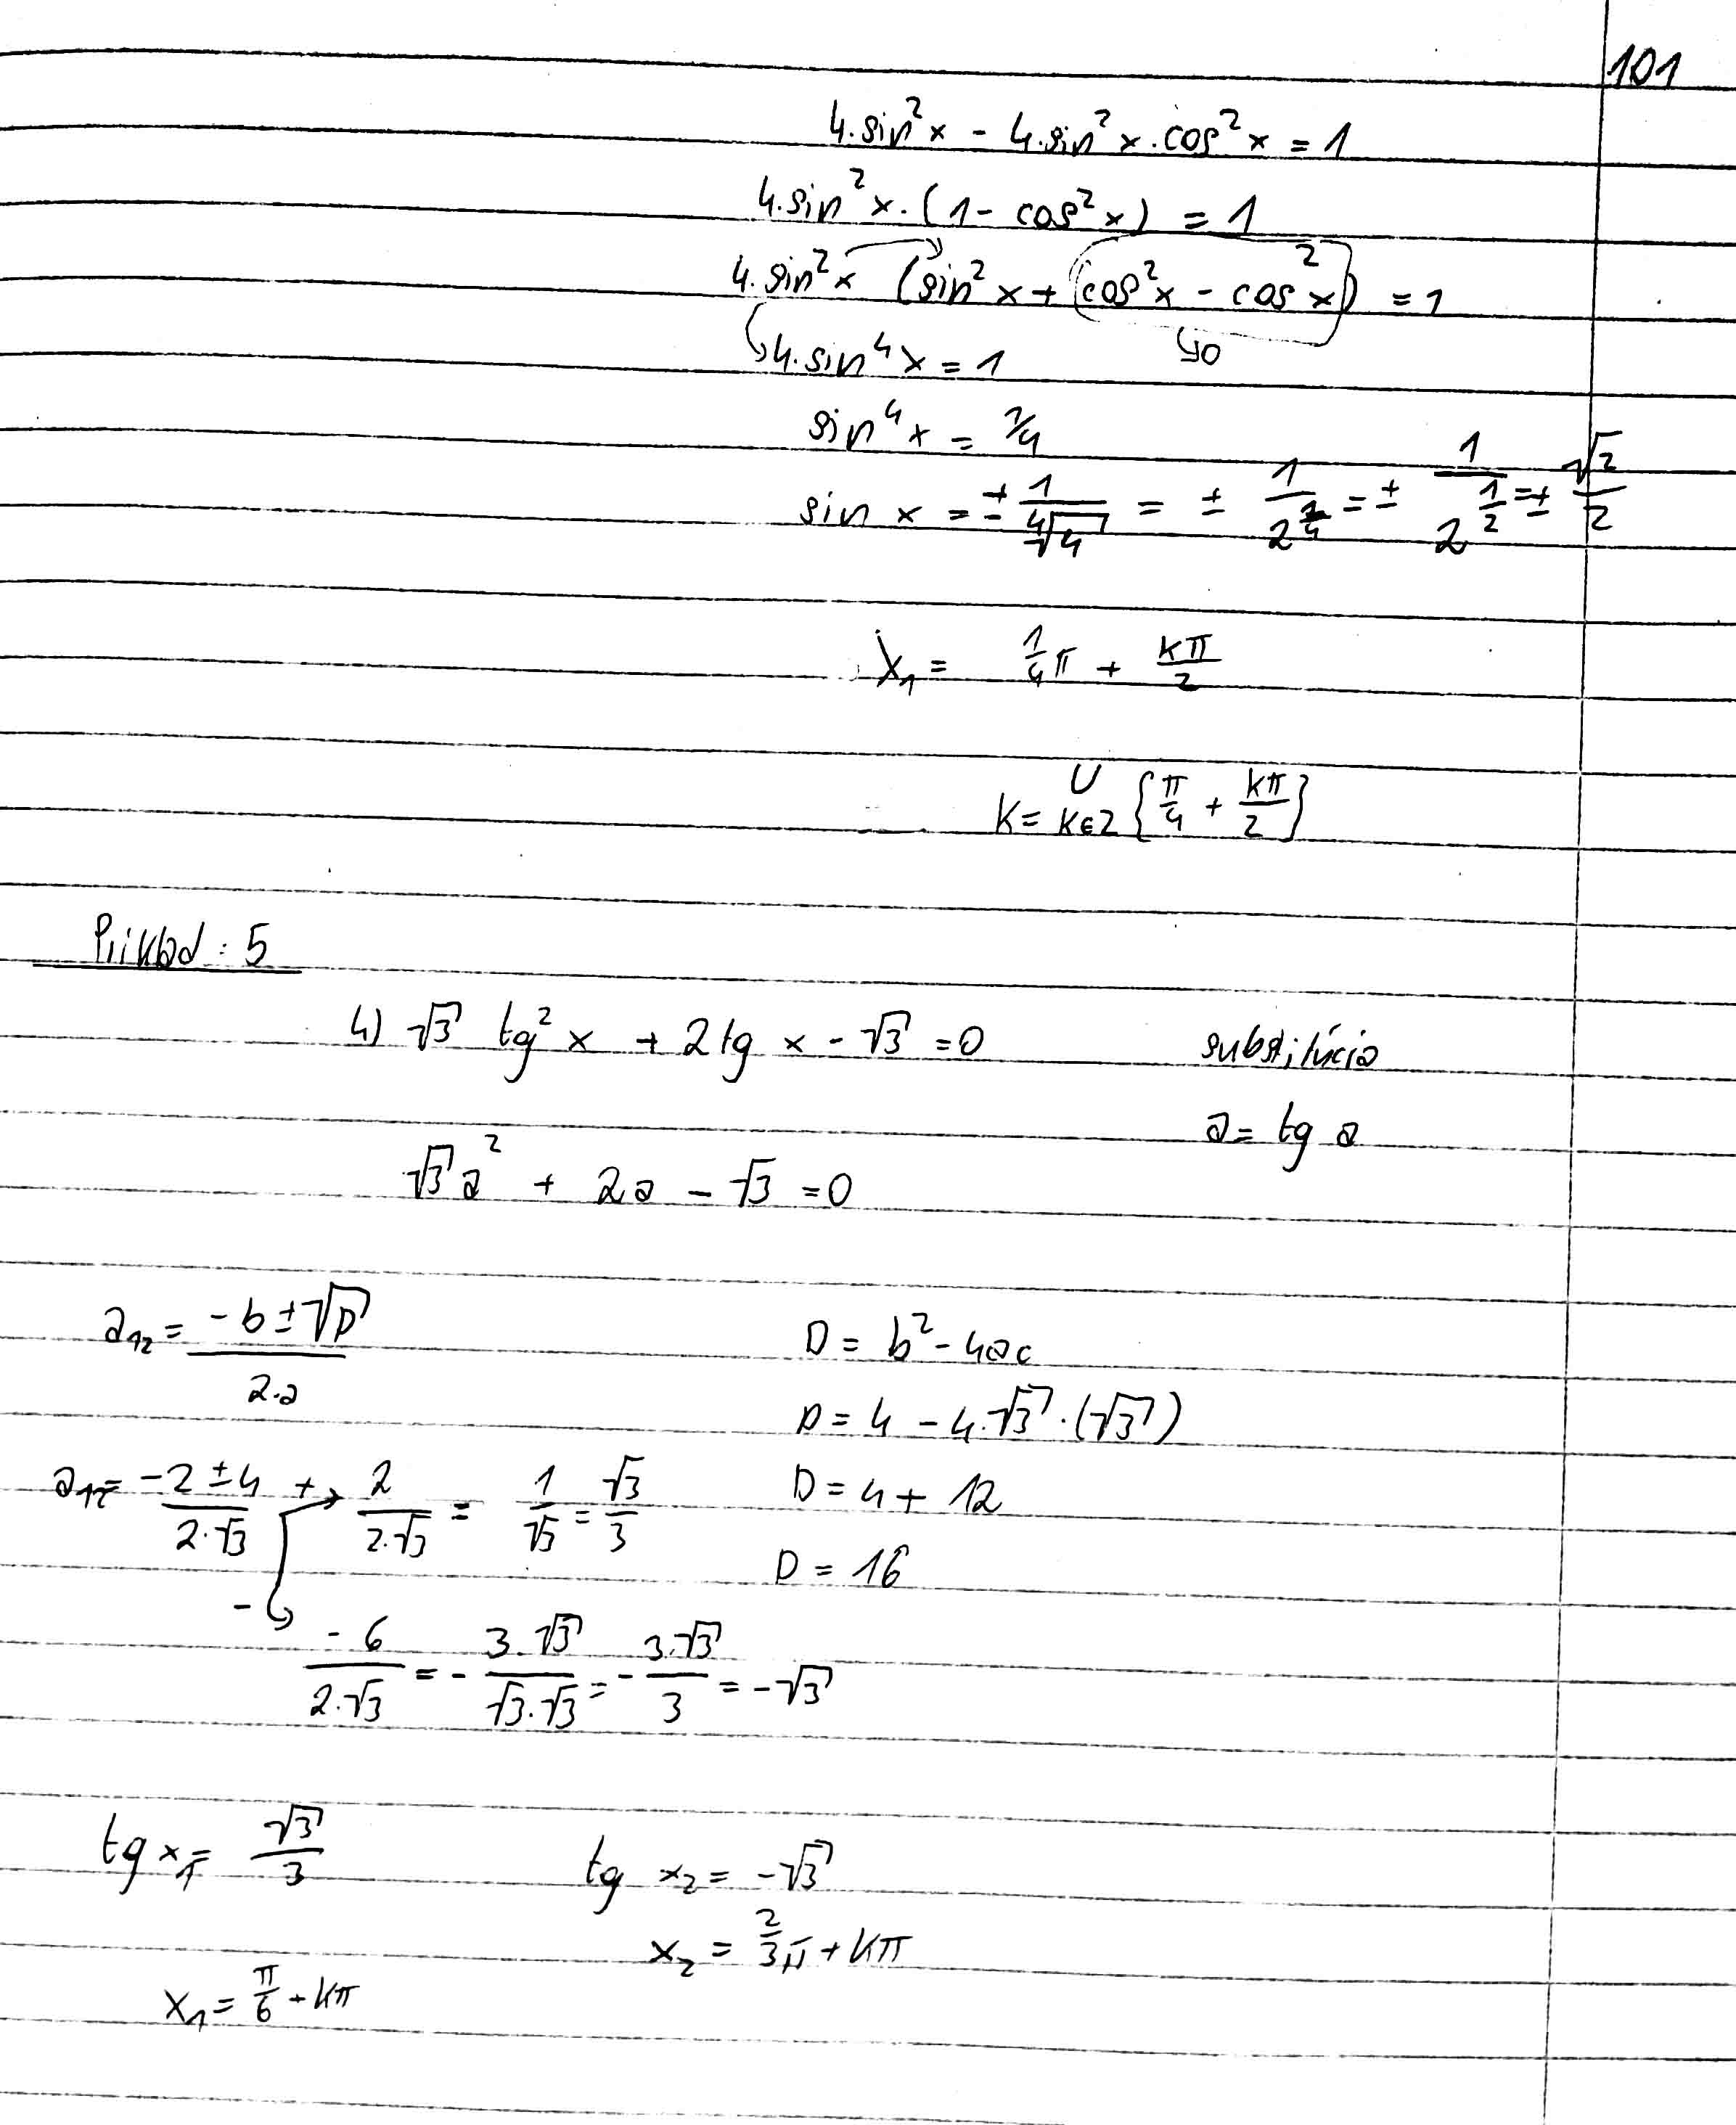 101
4.sin²x - 4.sin²x.cos²x = 1
4.sin²x.(1 - cos²x) = 1
4.sin²x (sin²x + cos²x - cos²x) = 1
4.sin⁴x = 1 ↳0
sin⁴x = 1/4
sin x = ± 1/⁴√4 = ± 1/2^(2/4) = ± 1/2^(1/2) = ± √2/2
x₁ = 1/4 π + kπ/2
K = ∪ k∈Z {π/4 + kπ/2}
Príklad : 5
4) √3 tg²x + 2tg x - √3 = 0 substitúcia
a = tg a
√3a² + 2a - √3 = 0
a₁₂ = (-b ± √D)/(2.a) D = b² - 4ac
D = 4 - 4.√3.(√3)
a₁₂ = (-2 ± 4)/(2.√3) + → 2/(2.√3) = 1/√3 = √3/3 D = 4 + 12
D = 16
- ↳ -6/(2.√3) = - (3.√3)/(√3.√3) = - (3.√3)/3 = -√3
tg x₁ = √3/3 tg x₂ = -√3
x₂ = 2/3 π + kπ
x₁ = π/6 + kπ